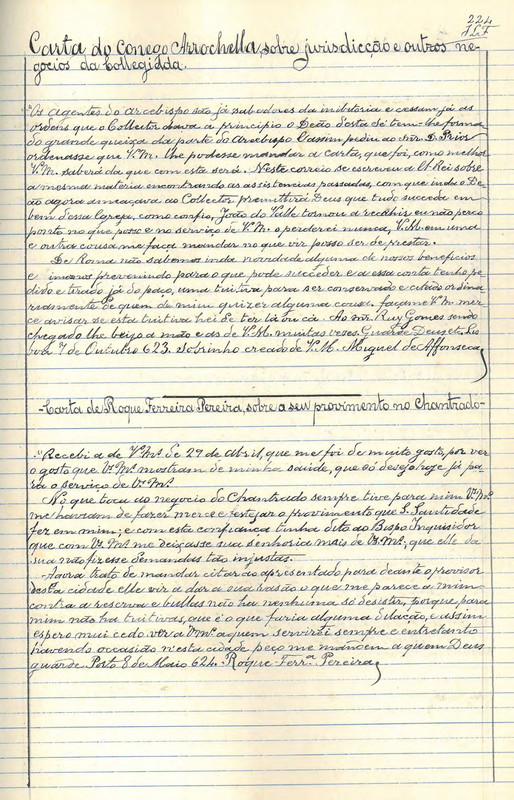 224
Carta do Conego Arrochella, sobre jurisdicção e outros ne-
gocios da Collegiada.
Os agentes do arcebispo são já sabedores da inibitoria e cessam já as
ordens que o Collector dava a principio o Deão desta Sé tem-lhe forma
do grande queixa da parte do Arcebispo O assim pediu ao Snr. D. Prior
ordenasse que V.M. lhe podesse mandar a carta, que foi, como melhor
V.M. saberá da que com esta será. Neste correio se escreveu a El-Rei sobre
a mesma materia encontrando as assistencias passadas, com que inda o De-
ão agora ameaçava ao Collector premittirá Deus que tudo succeda em
bem dessa Egreja, como confio, João do Valle tornou a recebhis eu não perço
ponto no que posso e no serviço de V.M. o perderei nunca, V.M. em uma
e outra cousa me faça mandar no que vir posso ser de prestar.
De Roma não sabemos inda novidade alguma de nossos beneficios
e imanos prevenindo para o que pode succeder e a essa conta tenho pe-
dido e tirado já do paço, uma tuitiva para ser conservado e citado ordina-
riamente de quem de mim quizer alguma cousa. façame V.M. mer-
ce avisar se esta tuitiva hei de ter lá ou cá. Ao snr. Ruy Gomes sendo
chegado lhe beijo a mão e as de V.M. muitas vezes. Guarde Deus et. Lis-
boa 7 de Outubro 623. Sobrinho creado de V.M. Miguel de Affonseca
-Carta de Roque Ferreira Pereira, sobre a seu provimento no Chantrado-
Recebi a de V.Mᶜ. de 27 de Abril, que me foi de muito gosto, por ver
o gosto que Vˢ. Mᶜ. mostram de minha saude, que só desejo hoje já pa-
ra o serviço de Vˢ. Mᶜ.
No que toca ao negocio do Chantrado sempre tive para mim Vˢ. Mᶜ.
me haviam de fazer merce e festejar o provimento que S. Santidade
fez em mim; e com esta confiança tinha dito ao Bispo Inquisidor
que com Vˢ. Mᶜ. me deixasse sua senhoria mais de Vˢ. Mᶜ.; que elle da
sua não fizesse demandas tão injustas.
Agora trato de mandar citar ao apresentado para deante o provisor
desta cidade elle vir a dar a sua rasão o que me parece a mim
contra a reserva e bullas não ha nenhuma só desistir, porque para
mim não ha tuitivas, que é o que faria alguma dilação, e assim
espero mui cedo ver a Vˢ. Mᶜ. a quem servirei sempre e entretanto
havendo occasião n'esta cidade peço me mandem a quem Deus
guarde. Porto 8 de Maio 624. Roque Ferr.ᵃ Pereira